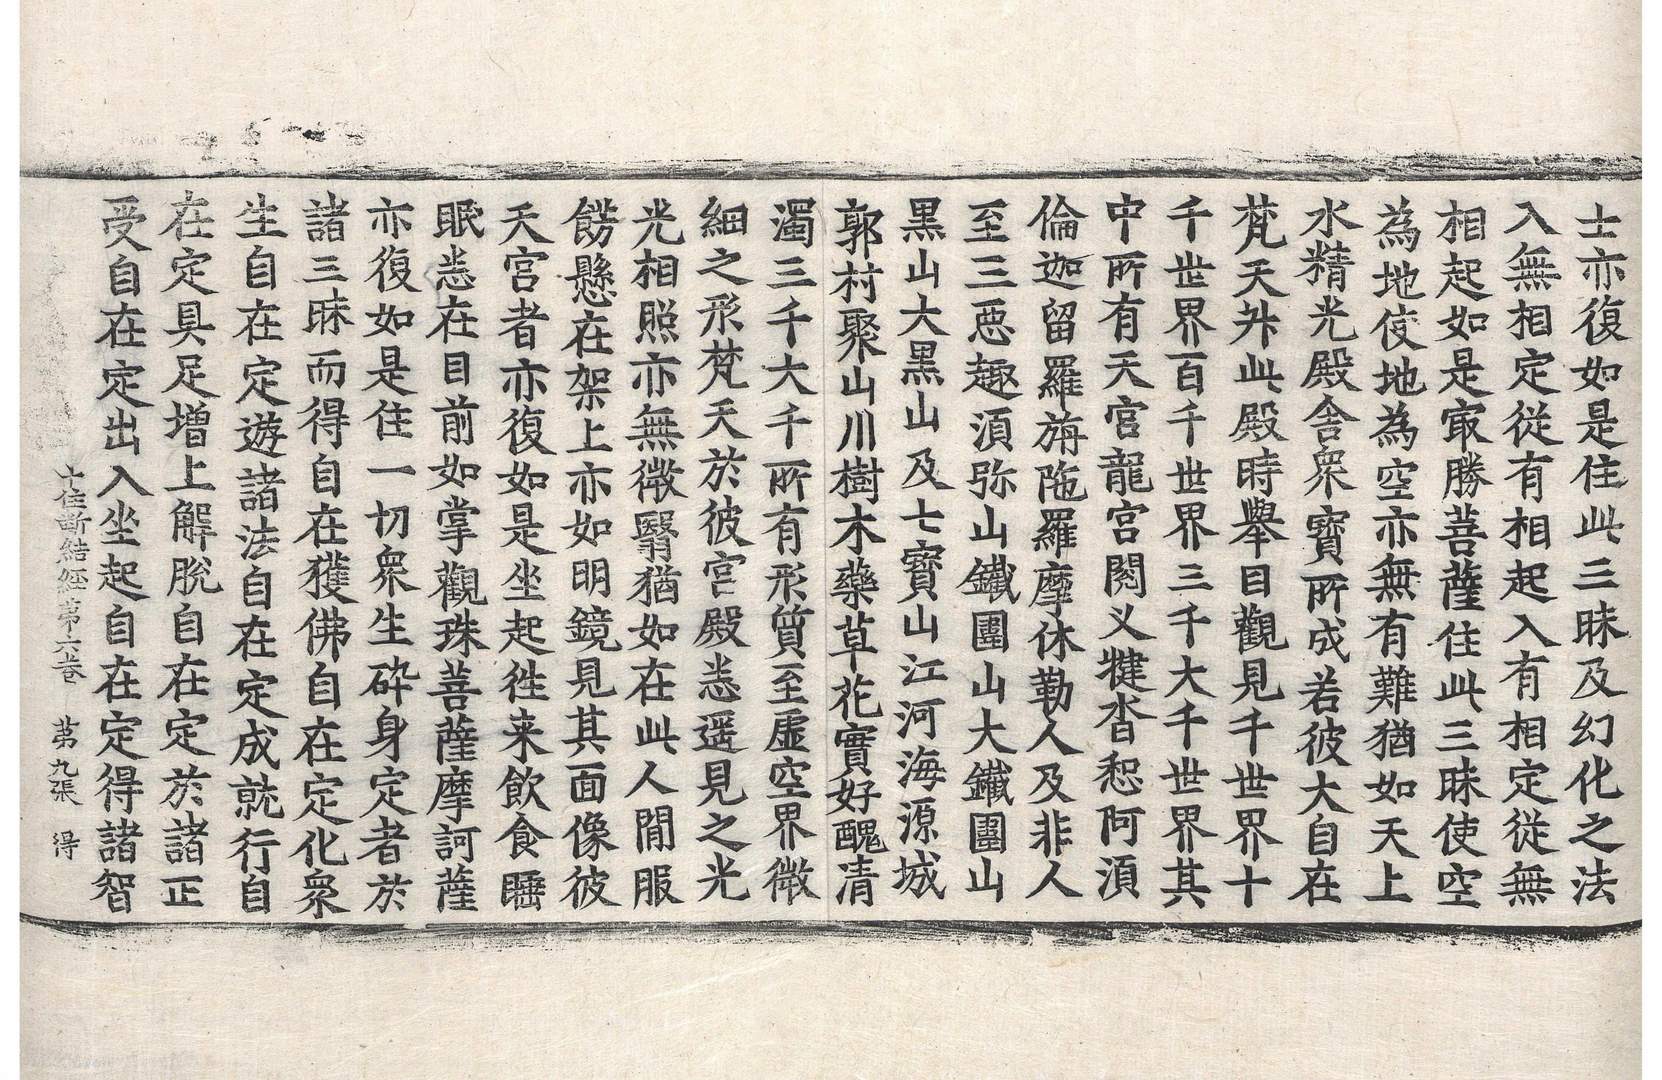 士亦復如是住此三昧及幻化之法
入無相定從有相起入有相定從無
相起如是㝡勝菩薩住此三昧使空
為地使地為空亦無有難猶如天上
水精光殿舍衆寶所成若彼大自在
梵天昇此殿時舉目觀見千世界十
千世界百千世界三千大千世界其
中所有天宮龍宮閱叉揵沓惒阿湏
倫迦留羅旃陁羅摩休勒人及非人
至三惡趣湏弥山鐵圍山大鐵圍山
黒山大黒山及七寶山江河海源城
郭村聚山川樹木藥草花實好醜清
濁三千大千所有形質至虛空界微
細之形梵天於彼宮殿悉遥見之光
光相照亦無微翳猶如在此人間服
餝懸在架上亦如明鏡見其面像彼
天宮者亦復如是坐起徃来飲食睡
眠悉在目前如掌觀珠菩薩摩訶薩
亦復如是住一切衆生碎身定者於
諸三昧而得自在獲佛自在定化衆
生自在定遊諸法自在定成就行自
在定具足增上解脫自在定於諸正
受自在定出入坐起自在定得諸智
十住斷結經第六卷 第九張 得